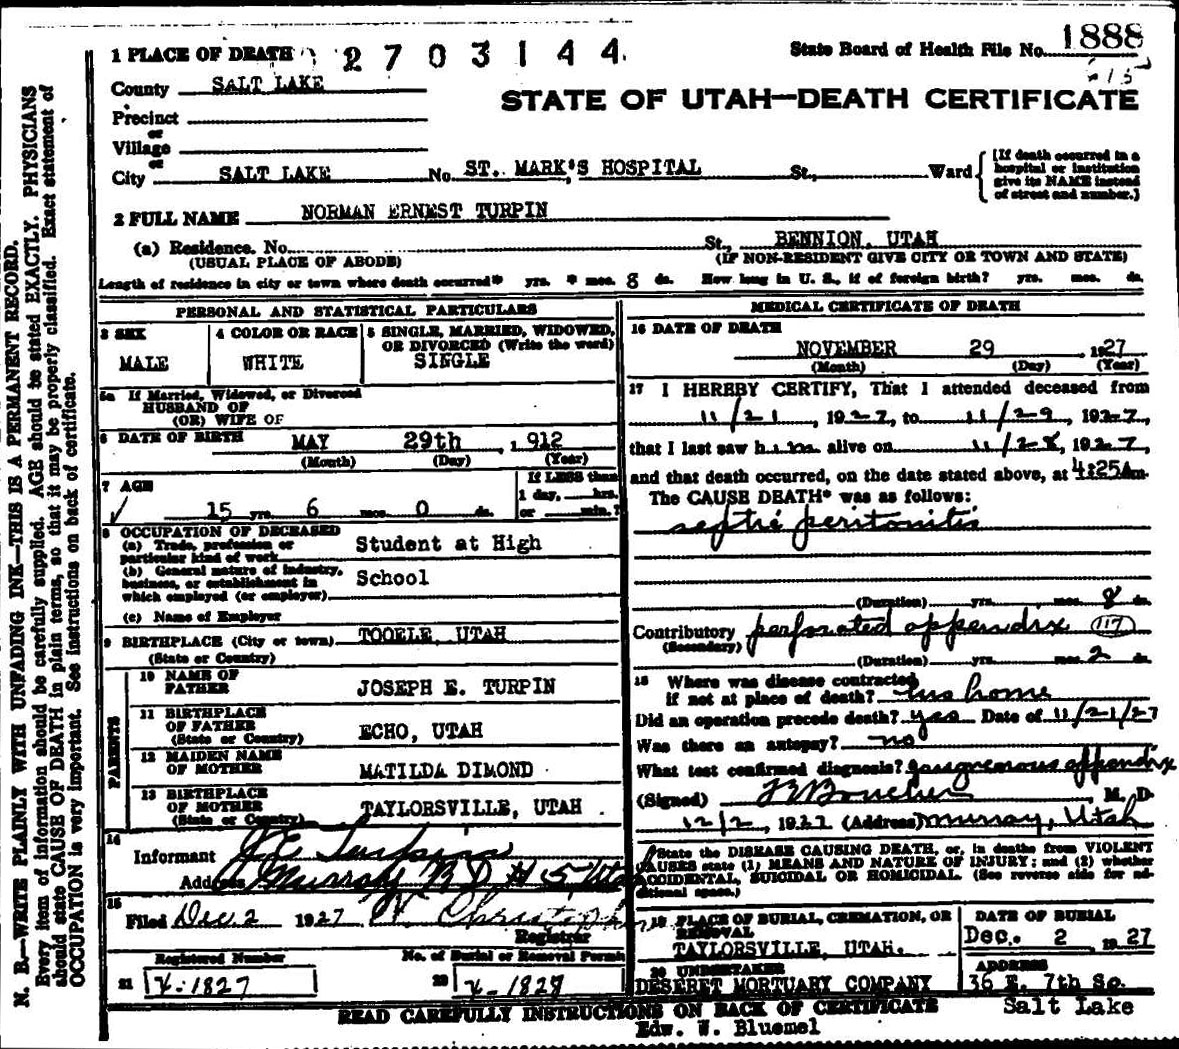 1 PLACE OF DEATH 2703144
State Board of Health File No. 1888
County SALT LAKE
STATE OF UTAH—DEATH CERTIFICATE
Precinct
or
Village
or
City SALT LAKE No. ST. MARK'S HOSPITAL St., Ward
(If death occurred in a hospital or institution give its NAME instead of street and number.)
2 FULL NAME NORMAN ERNEST TURPIN
(a) Residence. No. St., BENNION, UTAH
(USUAL PLACE OF ABODE) (IF NON-RESIDENT GIVE CITY OR TOWN AND STATE)
Length of residence in city or town where death occurred yrs. mos. 8 ds. How long in U. S., if of foreign birth? yrs. mos. ds.
PERSONAL AND STATISTICAL PARTICULARS
3 SEX MALE
4 COLOR OR RACE WHITE
5 SINGLE, MARRIED, WIDOWED, OR DIVORCED (Write the word) SINGLE
5a If Married, Widowed, or Divorced
HUSBAND OF
(OR) WIFE OF
6 DATE OF BIRTH MAY 29th, 1912
(Month) (Day) (Year)
7 AGE 15 yrs. 6 mos. 0 ds.
If LESS than 1 day, hrs. or min.?
8 OCCUPATION OF DECEASED
(a) Trade, profession or particular kind of work Student at High
(b) General nature of industry, business, or establishment in which employed (or employer) School
(c) Name of Employer
9 BIRTHPLACE (City or town) TOOELE, UTAH
(State or Country)
PARENTS
10 NAME OF FATHER JOSEPH E. TURPIN
11 BIRTHPLACE OF FATHER (State or Country) ECHO, UTAH
12 MAIDEN NAME OF MOTHER MATILDA DIMOND
13 BIRTHPLACE OF MOTHER (State or Country) TAYLORSVILLE, UTAH
14
Informant J E Turpin
Address Murray R D # 5 Utah
15
Filed Dec. 2 1927
Registrar
Registered Number
21 X-1827
No. of Burial or Removal Permit
22 X-1828
MEDICAL CERTIFICATE OF DEATH
16 DATE OF DEATH
NOVEMBER 29, 1927
(Month) (Day) (Year)
17 I HEREBY CERTIFY, That I attended deceased from
11/21, 1927, to 11/29, 1927,
that I last saw him alive on 11/28, 1927,
and that death occurred, on the date stated above, at 4:25A m.
The CAUSE DEATH* was as follows:
septic peritonitis
(Duration) yrs. mos. 8 ds.
Contributory perforated appendix 117
(Secondary)
(Duration) yrs. mos. 2 ds.
18 Where was disease contracted
if not at place of death? his home
Did an operation precede death? yes Date of 11/21/27
Was there an autopsy? no
What test confirmed diagnosis? gangrenous appendix
(Signed) Boucher M. D.
12/2, 1927 (Address) Murray, Utah
State the DISEASE CAUSING DEATH, or, in deaths from VIOLENT
CAUSES state (1) MEANS AND NATURE OF INJURY; and (2) whether
ACCIDENTAL, SUICIDAL OR HOMICIDAL. (See reverse side for ad-
ditional space.)
19 PLACE OF BURIAL, CREMATION, OR REMOVAL
TAYLORSVILLE, UTAH.
DATE OF BURIAL
Dec. 2 1927
20 UNDERTAKER
DESERET MORTUARY COMPANY
ADDRESS
36 E. 7th So.
Salt Lake
READ CAREFULLY INSTRUCTIONS ON BACK OF CERTIFICATE
Edw. W. Bluemel
N. B.—WRITE PLAINLY WITH UNFADING INK—THIS IS A PERMANENT RECORD.
Every item of information should be carefully supplied. AGE should be stated EXACTLY. PHYSICIANS
should state CAUSE OF DEATH in plain terms, so that it may be properly classified. Exact statement of
OCCUPATION is very important. See instructions on back of certificate.